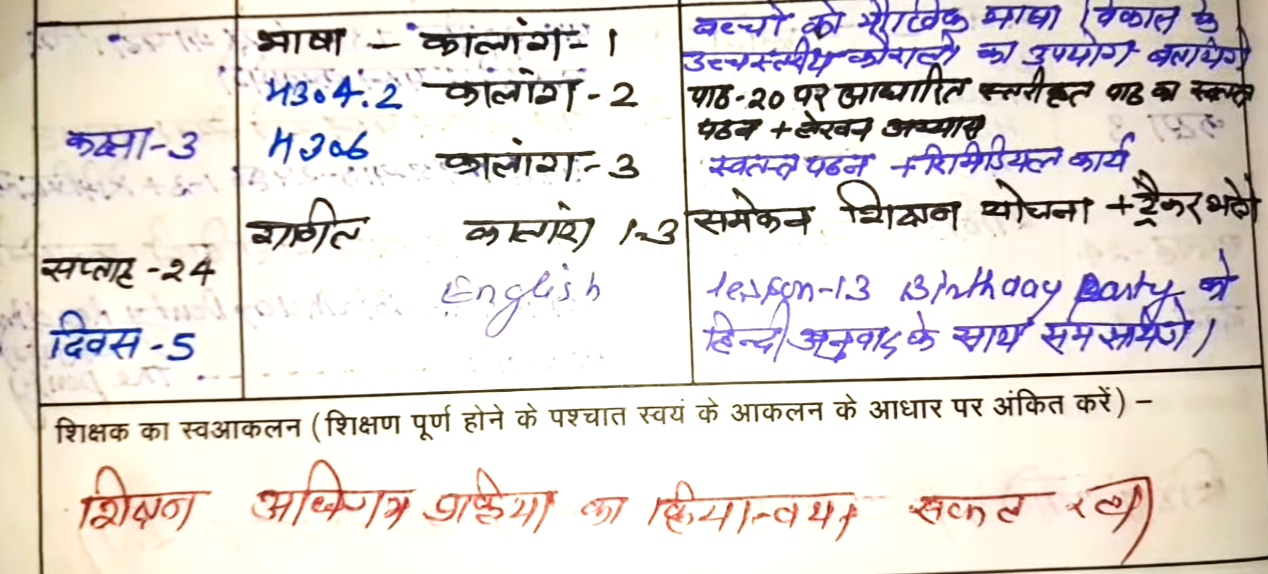 भाषा - कालांश - 1 बच्चों को मौखिक भाषा विकास के
उच्चस्तरीय कौशलों का उपयोग बतायेंगे
H304.2 कालांश - 2 पाठ-20 पर आधारित स्तरीकृत पाठ का स्वतंत्र
पठन + लेखन अभ्यास
कक्षा-3 H306 कालांश - 3 स्वतन्त्र पठन + रिमेडियल कार्य
गणित कालांश 1-3 समेकन शिक्षण योजना + ट्रैकर भरेंगे
सप्ताह -24 English lesson-13 Birthday Party को
दिवस -5 हिन्दी अनुवाद के साथ समझायेंगे।
शिक्षक का स्वआकलन (शिक्षण पूर्ण होने के पश्चात स्वयं के आकलन के आधार पर अंकित करें) –
शिक्षण अधिगम प्रक्रिया का क्रियान्वयन सफल रहा।